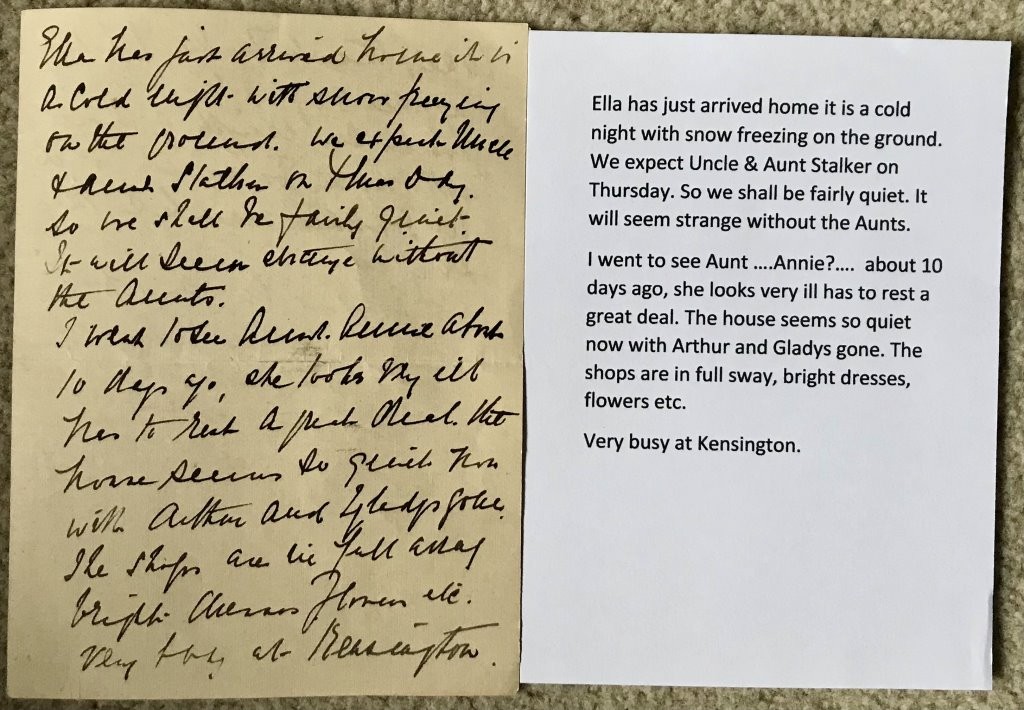 Ella has just arrived home it is
a cold night with snow freezing
on the ground. We expect Uncle
& Aunt on Thursday.
So we shall be fairly quiet.
It will seem strange without
the Aunts.
I went to see Aunt. Annie about
10 days ago, she looks very ill
has to rest a great deal. The
house seems so quiet now
with Arthur and Gladys gone.
The shops are in full array
bright dresses flowers etc.
Very busy at Kensington.
Ella has just arrived home it is a cold
night with snow freezing on the ground.
We expect Uncle & Aunt Stalker on
Thursday. So we shall be fairly quiet. It
will seem strange without the Aunts.
I went to see Aunt ….Annie?…. about 10
days ago, she looks very ill has to rest a
great deal. The house seems so quiet
now with Arthur and Gladys gone. The
shops are in full sway, bright dresses,
flowers etc.
Very busy at Kensington.